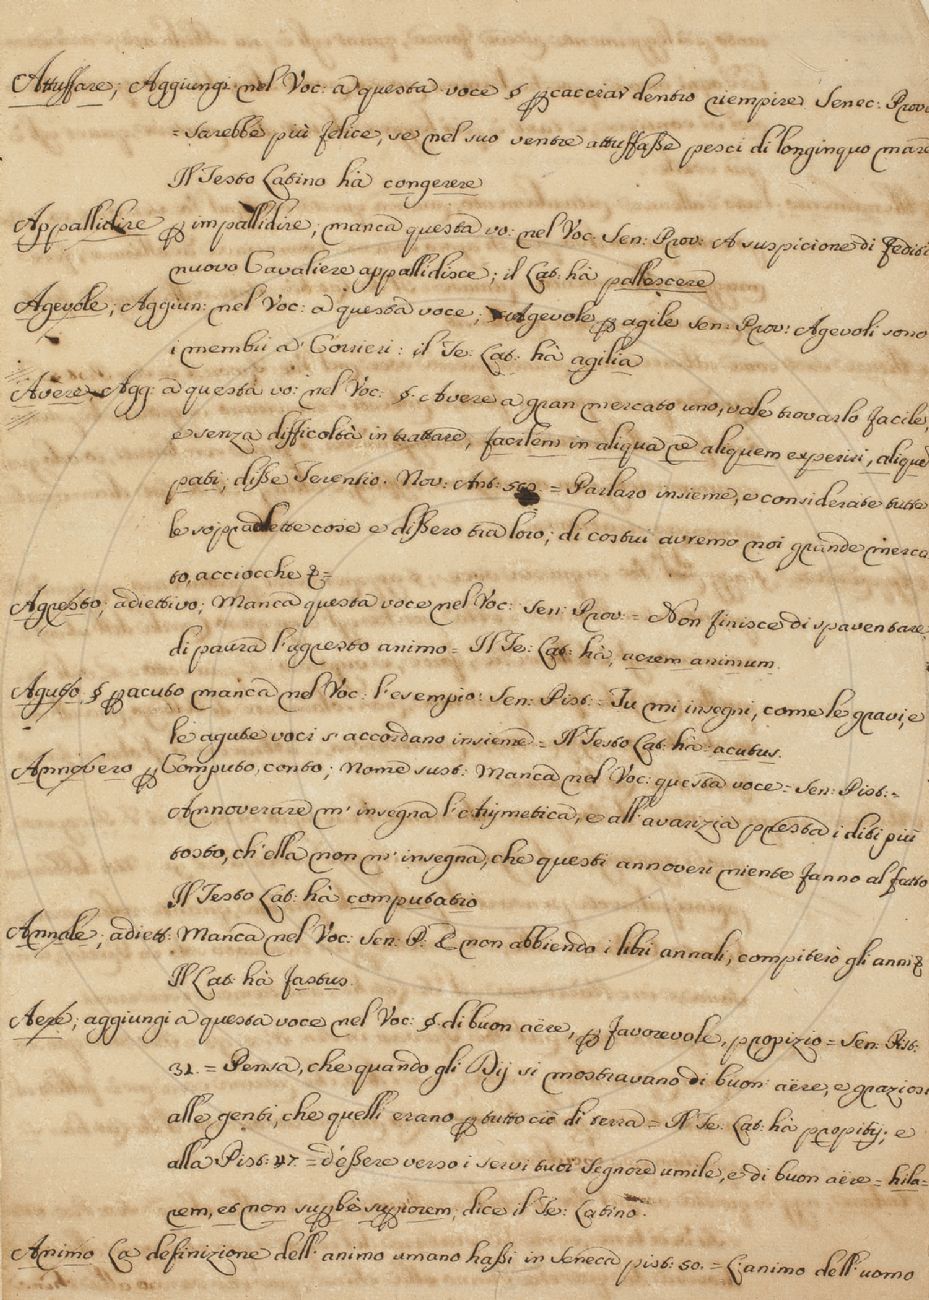 Attuffare; Aggiungi nel Voc: a questa voce § p cacciar dentro riempire Senec: Prov:
= sarebbe più felice, se nel suo ventre attuffaße pesci di longinquo mare
Il Testo Latino hà congerere
Appallidire p impallidire, manca questa vo: nel Voc: Sen: Prov: A suspicione di
nuovo Cavaliere appallidisce; il Lat: hà pallescere
Agevole; Aggiun: nel Voc: a questa voce; Agevole p agile Sen: Prov: Agevoli sono
i membri a' Corrieri: il Te: Lat: hà agilia
Avere Agg: a questa vo: nel Voc: §. Avere a gran mercato uno, vale trovarlo facile,
e senza difficoltà in trattare, facilem in aliqua re aliquem experiri, alique
pati, diße Terentio. Nov: Ant: = Parlaro insieme, e considerate tutte
le sopradette cose e dißero tra loro; di costui avremo noi grande merca
to, acciocche &=
Agresto; adiettivo; Manca questa voce nel Voc: Sen: Prov: = Non finisce di spaventare,
di paura l'agresto animo = Il Te: Lat: hà, acrem animum.
Aguto § p acuto manca nel Voc: l'esempio: Sen: Pist: = Tu mi insegni, come le gravi, e
le agute voci s'accordano insieme = Il Testo Lat: hà: acutus.
Annovero p Computo, conto; Nome sust: Manca nel Voc: questa voce = Sen: Pist: =
Annoverare m'insegna l'Arismetica, e all'avarizia presta i diti più
tosto, ch'ella non m'insegna, che questi annoveri niente fanno al fatto
Il Testo Lat: hà computatio
Annale; adiett: Manca nel Voc: Sen: P: E non abbiendo i libri annali, compiterò gli anni &
Il Lat: hà fastus.
Aere; aggiungi a questa voce nel Voc: §. di buon aëre, p favorevole, propizio = Sen: Pist:
31. = Pensa, che quando gli Dij si mostravano di buon aëre, e graziosi
alle genti, che quelli erano p tutto ciò di terra = Il Te: Lat: hà propitij; e
alla Pist: 47. = d'eßere verso i servi tuoi Signore umile, e di buon aëre = hila=
rem, et non suppbè suppiorem, dice il Te: Latino.
Animo La definizione dell'animo umano haßi in Seneca pist: 50. = L'animo dell'uomo